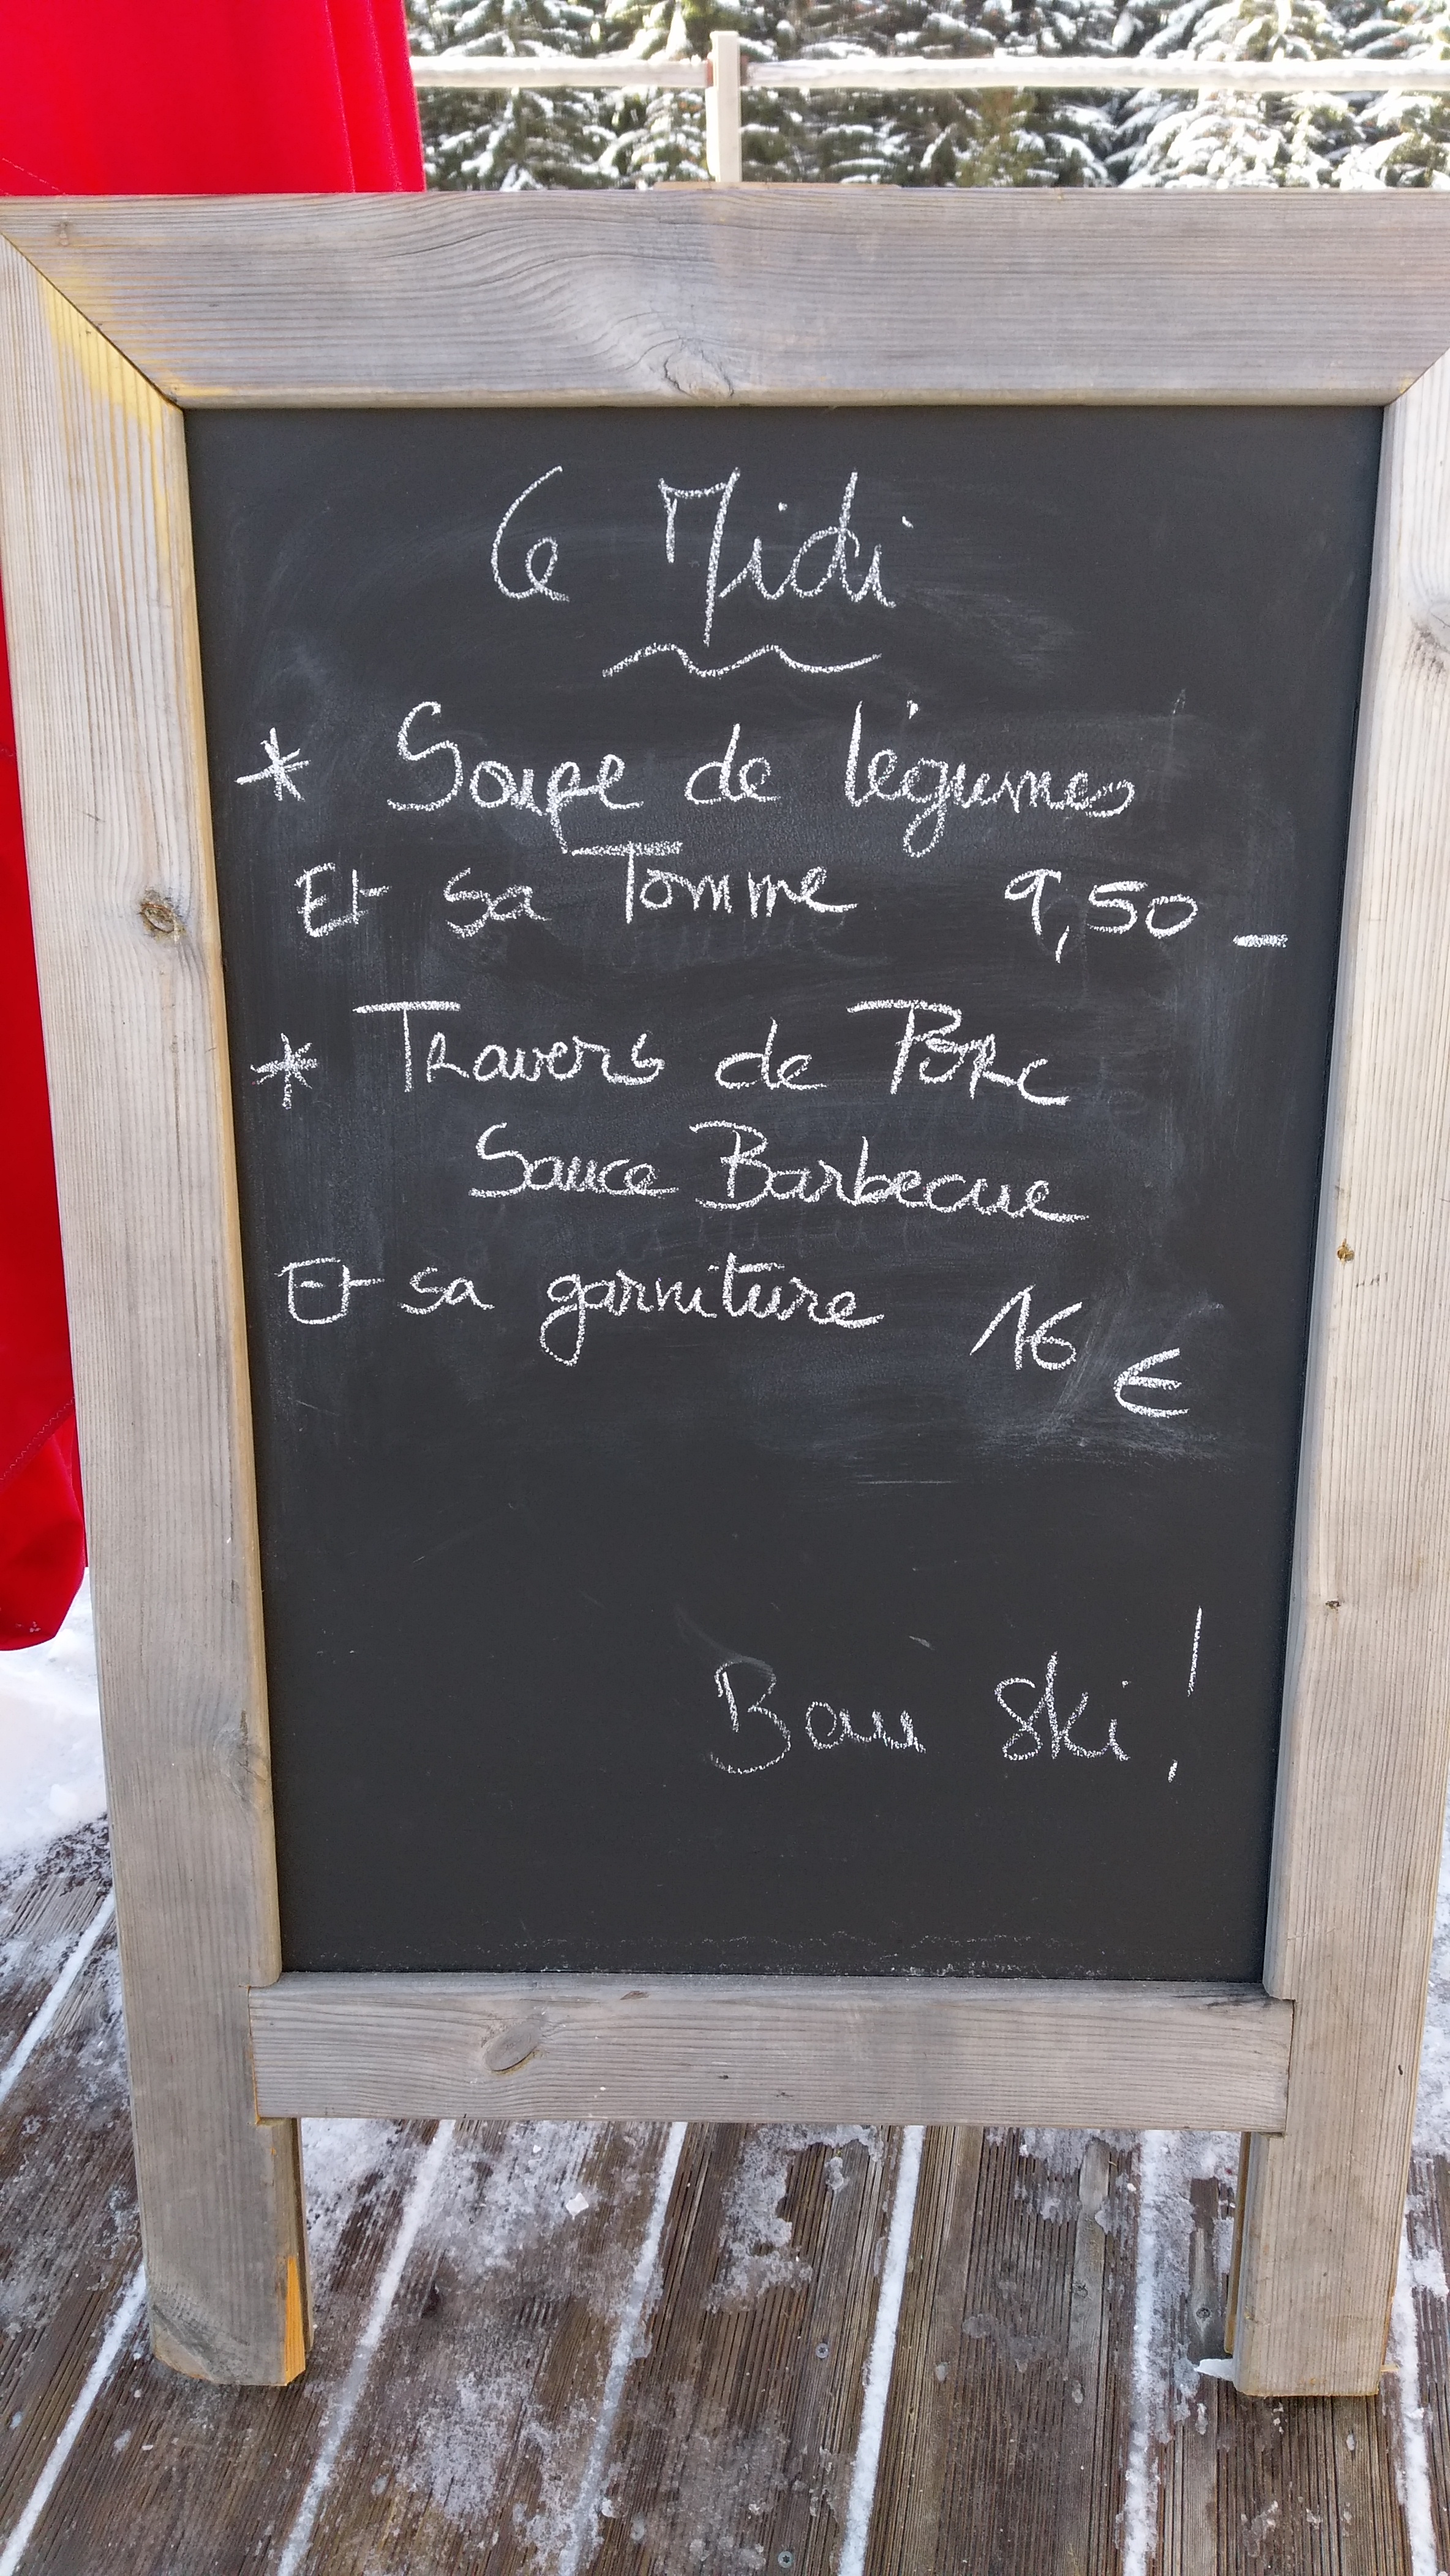 Ce Midi
* Soupe de légumes
Et sa Tomme 9,50 -
* Travers de Porc
Sauce Barbecue
Et sa garniture 16 €
Bon ski !